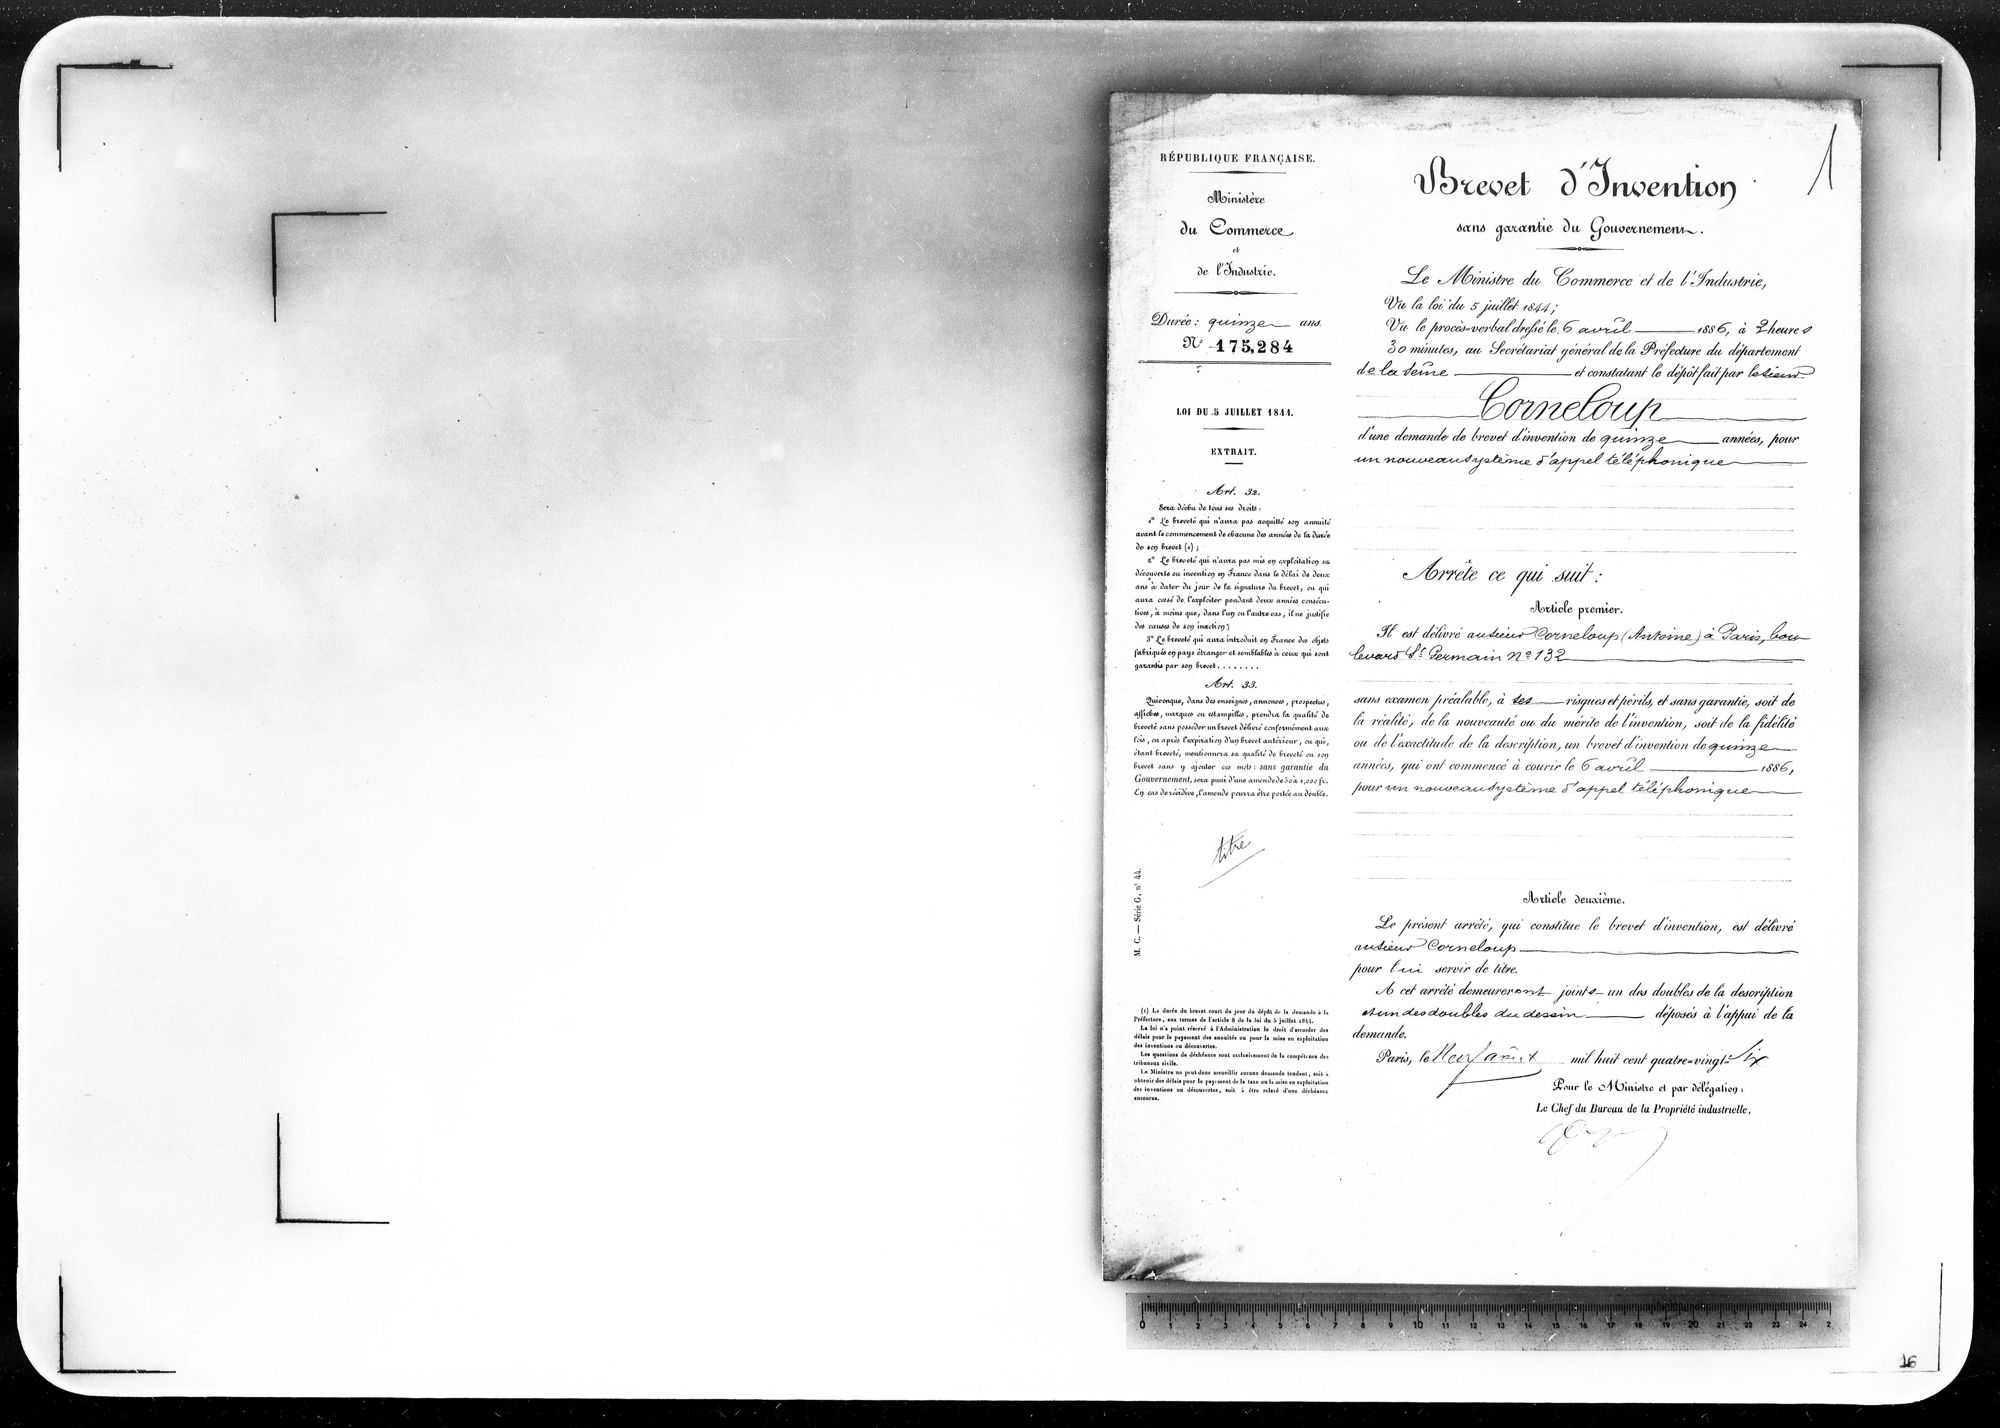 RÉPUBLIQUE FRANÇAISE.
Ministère
du Commerce
et
de l'Industrie.
Durée : quinze ans.
N° 175,284
LOI DU 5 JUILLET 1844.
EXTRAIT.
Art. 32.
Sera déchu de tous ses droits :
1° Le breveté qui n'aura pas acquitté son annuité
avant le commencement de chacune des années de la durée
de son brevet (1) ;
2° Le breveté qui n'aura pas mis en exploitation sa
découverte ou invention en France dans le délai de deux
ans à dater du jour de la signature du brevet, ou qui
aura cessé de l'exploiter pendant deux années consécu-
tives, à moins que, dans l'un ou l'autre cas, il ne justifie
des causes de son inaction ;
3° Le breveté qui aura introduit en France des objets
fabriqués en pays étranger et semblables à ceux qui sont
garantis par son brevet........
Art. 33.
Quiconque, dans des enseignes, annonces, prospectus,
affiches, marques ou estampilles, prendra la qualité de
breveté sans posséder un brevet délivré conformément aux
lois, ou après l'expiration d'un brevet antérieur, ou qui,
étant breveté, mentionnera sa qualité de breveté ou son
brevet sans y ajouter ces mots : sans garantie du
Gouvernement, sera puni d'une amende de 50 à 1,000 fr.
En cas de récidive, l'amende pourra être portée au double.
titre
M. C. — Série G, n° 44.
(1) La durée du brevet court du jour du dépôt de la demande à la
Préfecture, aux termes de l'article 8 de la loi du 5 juillet 1844.
La loi n'a point réservé à l'Administration le droit d'accorder des
délais pour le payement des annuités ou pour la mise en exploitation
des inventions ou découvertes.
Les questions de déchéance sont exclusivement de la compétence des
tribunaux civils.
Le Ministre ne peut donc accueillir aucune demande tendant, soit à
obtenir des délais pour le payement de la taxe ou la mise en exploitation
des inventions ou découvertes, soit à être relevé d'une déchéance
encourue.
1
Brevet d'Invention
sans garantie du Gouvernement.
Le Ministre du Commerce et de l'Industrie,
Vu la loi du 5 juillet 1844 ;
Vu le procès-verbal dressé le 6 avril 1886, à 2 heures
30 minutes, au Secrétariat général de la Préfecture du département
de la Seine et constatant le dépôt fait par le sieur
Corneloup
d'une demande de brevet d'invention de quinze années, pour
un nouveau système d'appel téléphonique
Arrête ce qui suit :
Article premier.
Il est délivré au sieur Corneloup (Antoine) à Paris, bou
levard St Germain n° 132
sans examen préalable, à ses risques et périls, et sans garantie, soit de
la réalité, de la nouveauté ou du mérite de l'invention, soit de la fidélité
ou de l'exactitude de la description, un brevet d'invention de quinze
années, qui ont commencé à courir le 6 avril 1886,
pour un nouveau système d'appel téléphonique
Article deuxième.
Le présent arrêté, qui constitue le brevet d'invention, est délivré
au sieur Corneloup
pour lui servir de titre.
A cet arrêté demeureront joints un des doubles de la description
et un des doubles du dessin déposés à l'appui de la
demande.
Paris, le Neuf août mil huit cent quatre-vingt-Six
Pour le Ministre et par délégation :
Le Chef du Bureau de la Propriété industrielle,
0 1 2 3 4 5 6 7 8 9 10 11 12 13 14 15 16 17 18 19 20 21 22 23 24 2
16